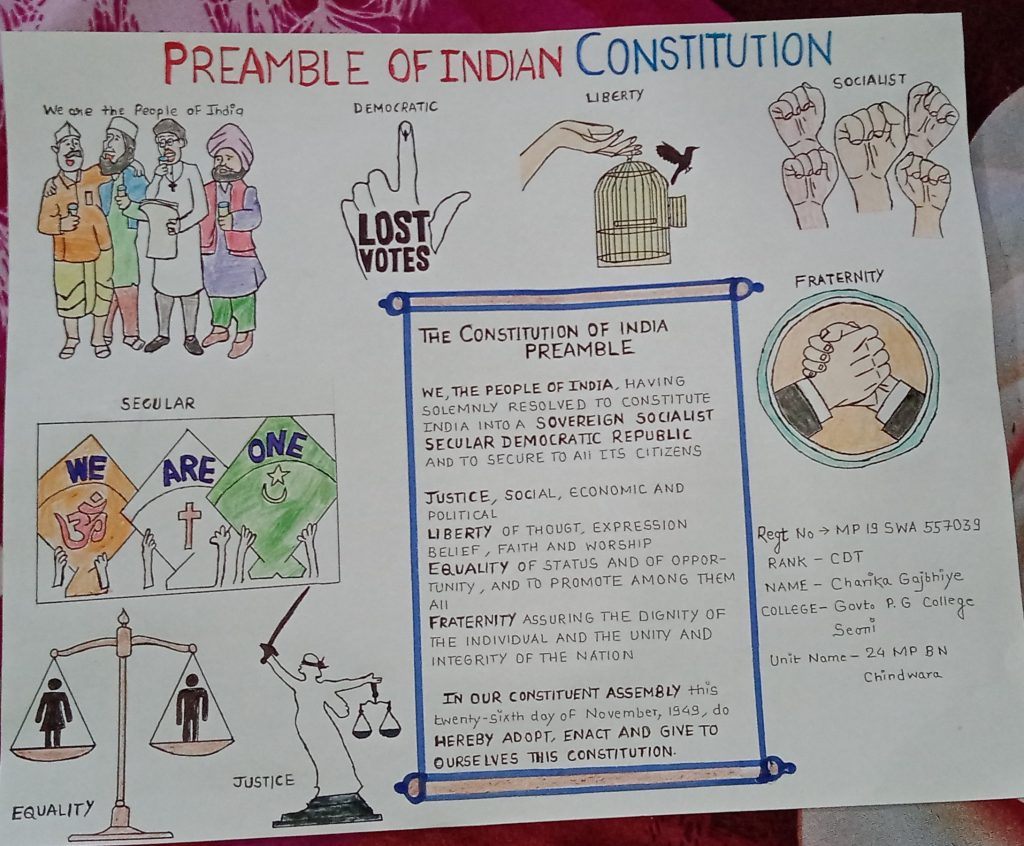 PREAMBLE OF INDIAN CONSTITUTION
We are the People of India
DEMOCRATIC
LIBERTY
SOCIALIST
LOST
VOTES
FRATERNITY
SECULAR
WE ARE ONE
ॐ
EQUALITY
JUSTICE
THE CONSTITUTION OF INDIA
PREAMBLE
WE, THE PEOPLE OF INDIA, HAVING
SOLEMNLY RESOLVED TO CONSTITUTE
INDIA INTO A SOVEREIGN SOCIALIST
SECULAR DEMOCRATIC REPUBLIC
AND TO SECURE TO All ITS CITIZENS
JUSTICE, SOCIAL, ECONOMIC AND
POLITICAL
LIBERTY OF THOUGT, EXPRESSION
BELIEF, FAITH AND WORSHIP
EQUALITY OF STATUS AND OF OPPOR-
TUNITY, AND TO PROMOTE AMONG THEM
All
FRATERNITY ASSURING THE DIGNITY OF
THE INDIVIDUAL AND THE UNITY AND
INTEGRITY OF THE NATION
IN OUR CONSTITUENT ASSEMBLY this
twenty-sixth day of November, 1949, do
HEREBY ADOPT, ENACT AND GIVE TO
OURSELVES THIS CONSTITUTION.
Regt No → MP 19 SWA 557039
RANK - CDT
NAME - Charika Gajbhiye
COLLEGE - Govt. P. G College
Seoni
Unit Name - 24 MP BN
Chindwara